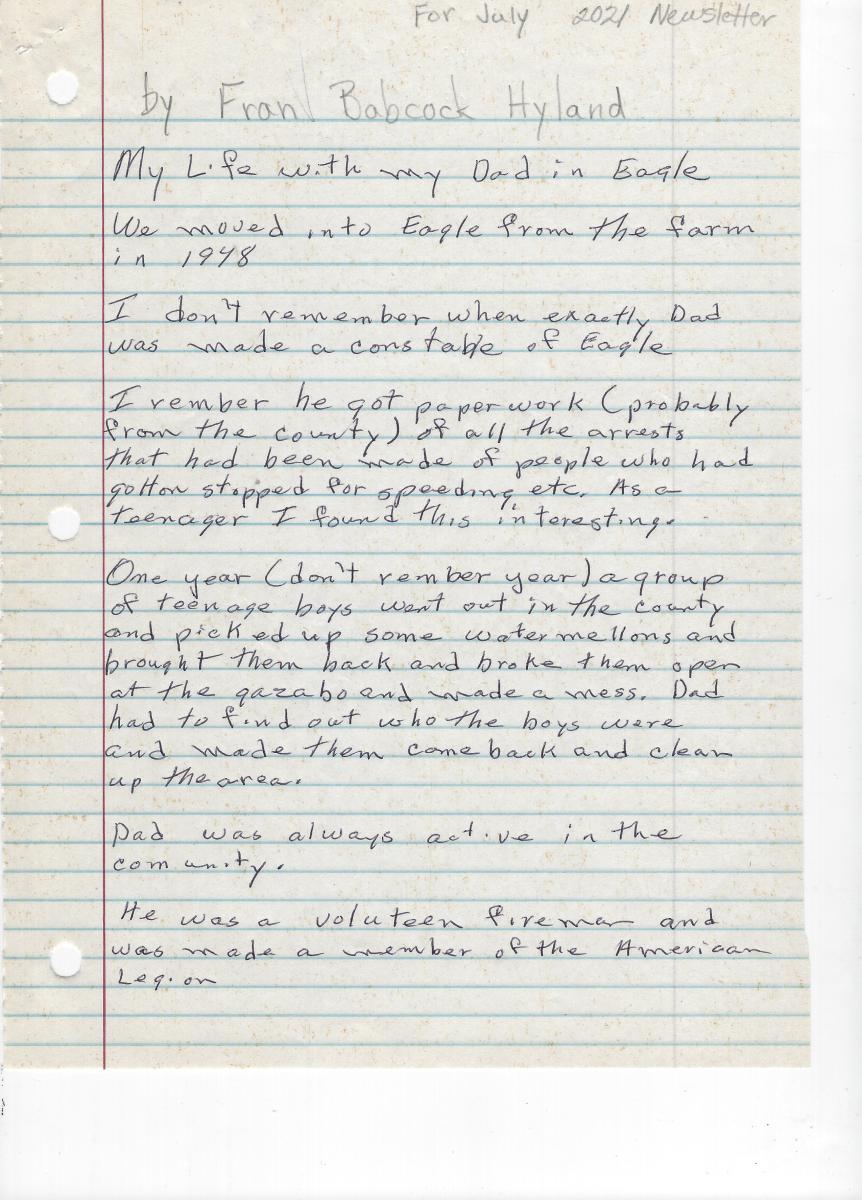 For July 2021 Newsletter
by Fran Babcock Hyland
My Life with my Dad in Eagle
We moved into Eagle from the farm
in 1948
I don't remember when exactly Dad
was made a constable of Eagle
I rember he got paperwork (probably
from the county) of all the arrests
that had been made of people who had
gotton stopped for speeding, etc. As a
teenager I found this interesting.
One year (don't rember year) a group
of teenage boys went out in the county
and picked up some watermellons and
brought them back and broke them open
at the gazabo and made a mess. Dad
had to find out who the boys were
and made them come back and clean
up the area.
Dad was always active in the
comunity.
He was a voluteen fireman and
was made a member of the American
Legion